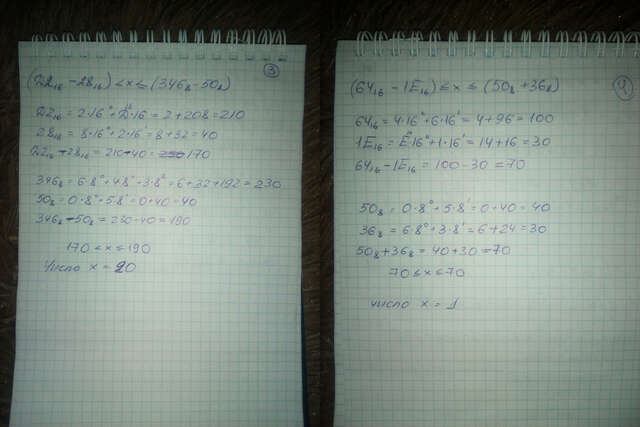 3
(D2₁₆ - 28₁₆) < x ≤ (346₈ - 50₈)
D2₁₆ = 2·16⁰ + D·16 = 2 + 208 = 210
28₁₆ = 8·16⁰ + 2·16 = 8 + 32 = 40
D2₁₆ - 28₁₆ = 210 - 40 = 170
346₈ = 6·8⁰ + 4·8¹ + 3·8² = 6 + 32 + 192 = 230
50₈ = 0·8⁰ + 5·8¹ = 0 + 40 = 40
346₈ - 50₈ = 230 - 40 = 190
170 < x ≤ 190
Число x = 20
4
(64₁₆ - 1E₁₆) ≤ x ≤ (50₈ + 36₈)
64₁₆ = 4·16⁰ + 6·16¹ = 4 + 96 = 100
1E₁₆ = E·16⁰ + 1·16¹ = 14 + 16 = 30
64₁₆ - 1E₁₆ = 100 - 30 = 70
50₈ = 0·8⁰ + 5·8¹ = 0 + 40 = 40
36₈ = 6·8⁰ + 3·8¹ = 6 + 24 = 30
50₈ + 36₈ = 40 + 30 = 70
70 ≤ x ≤ 70
число x = 1